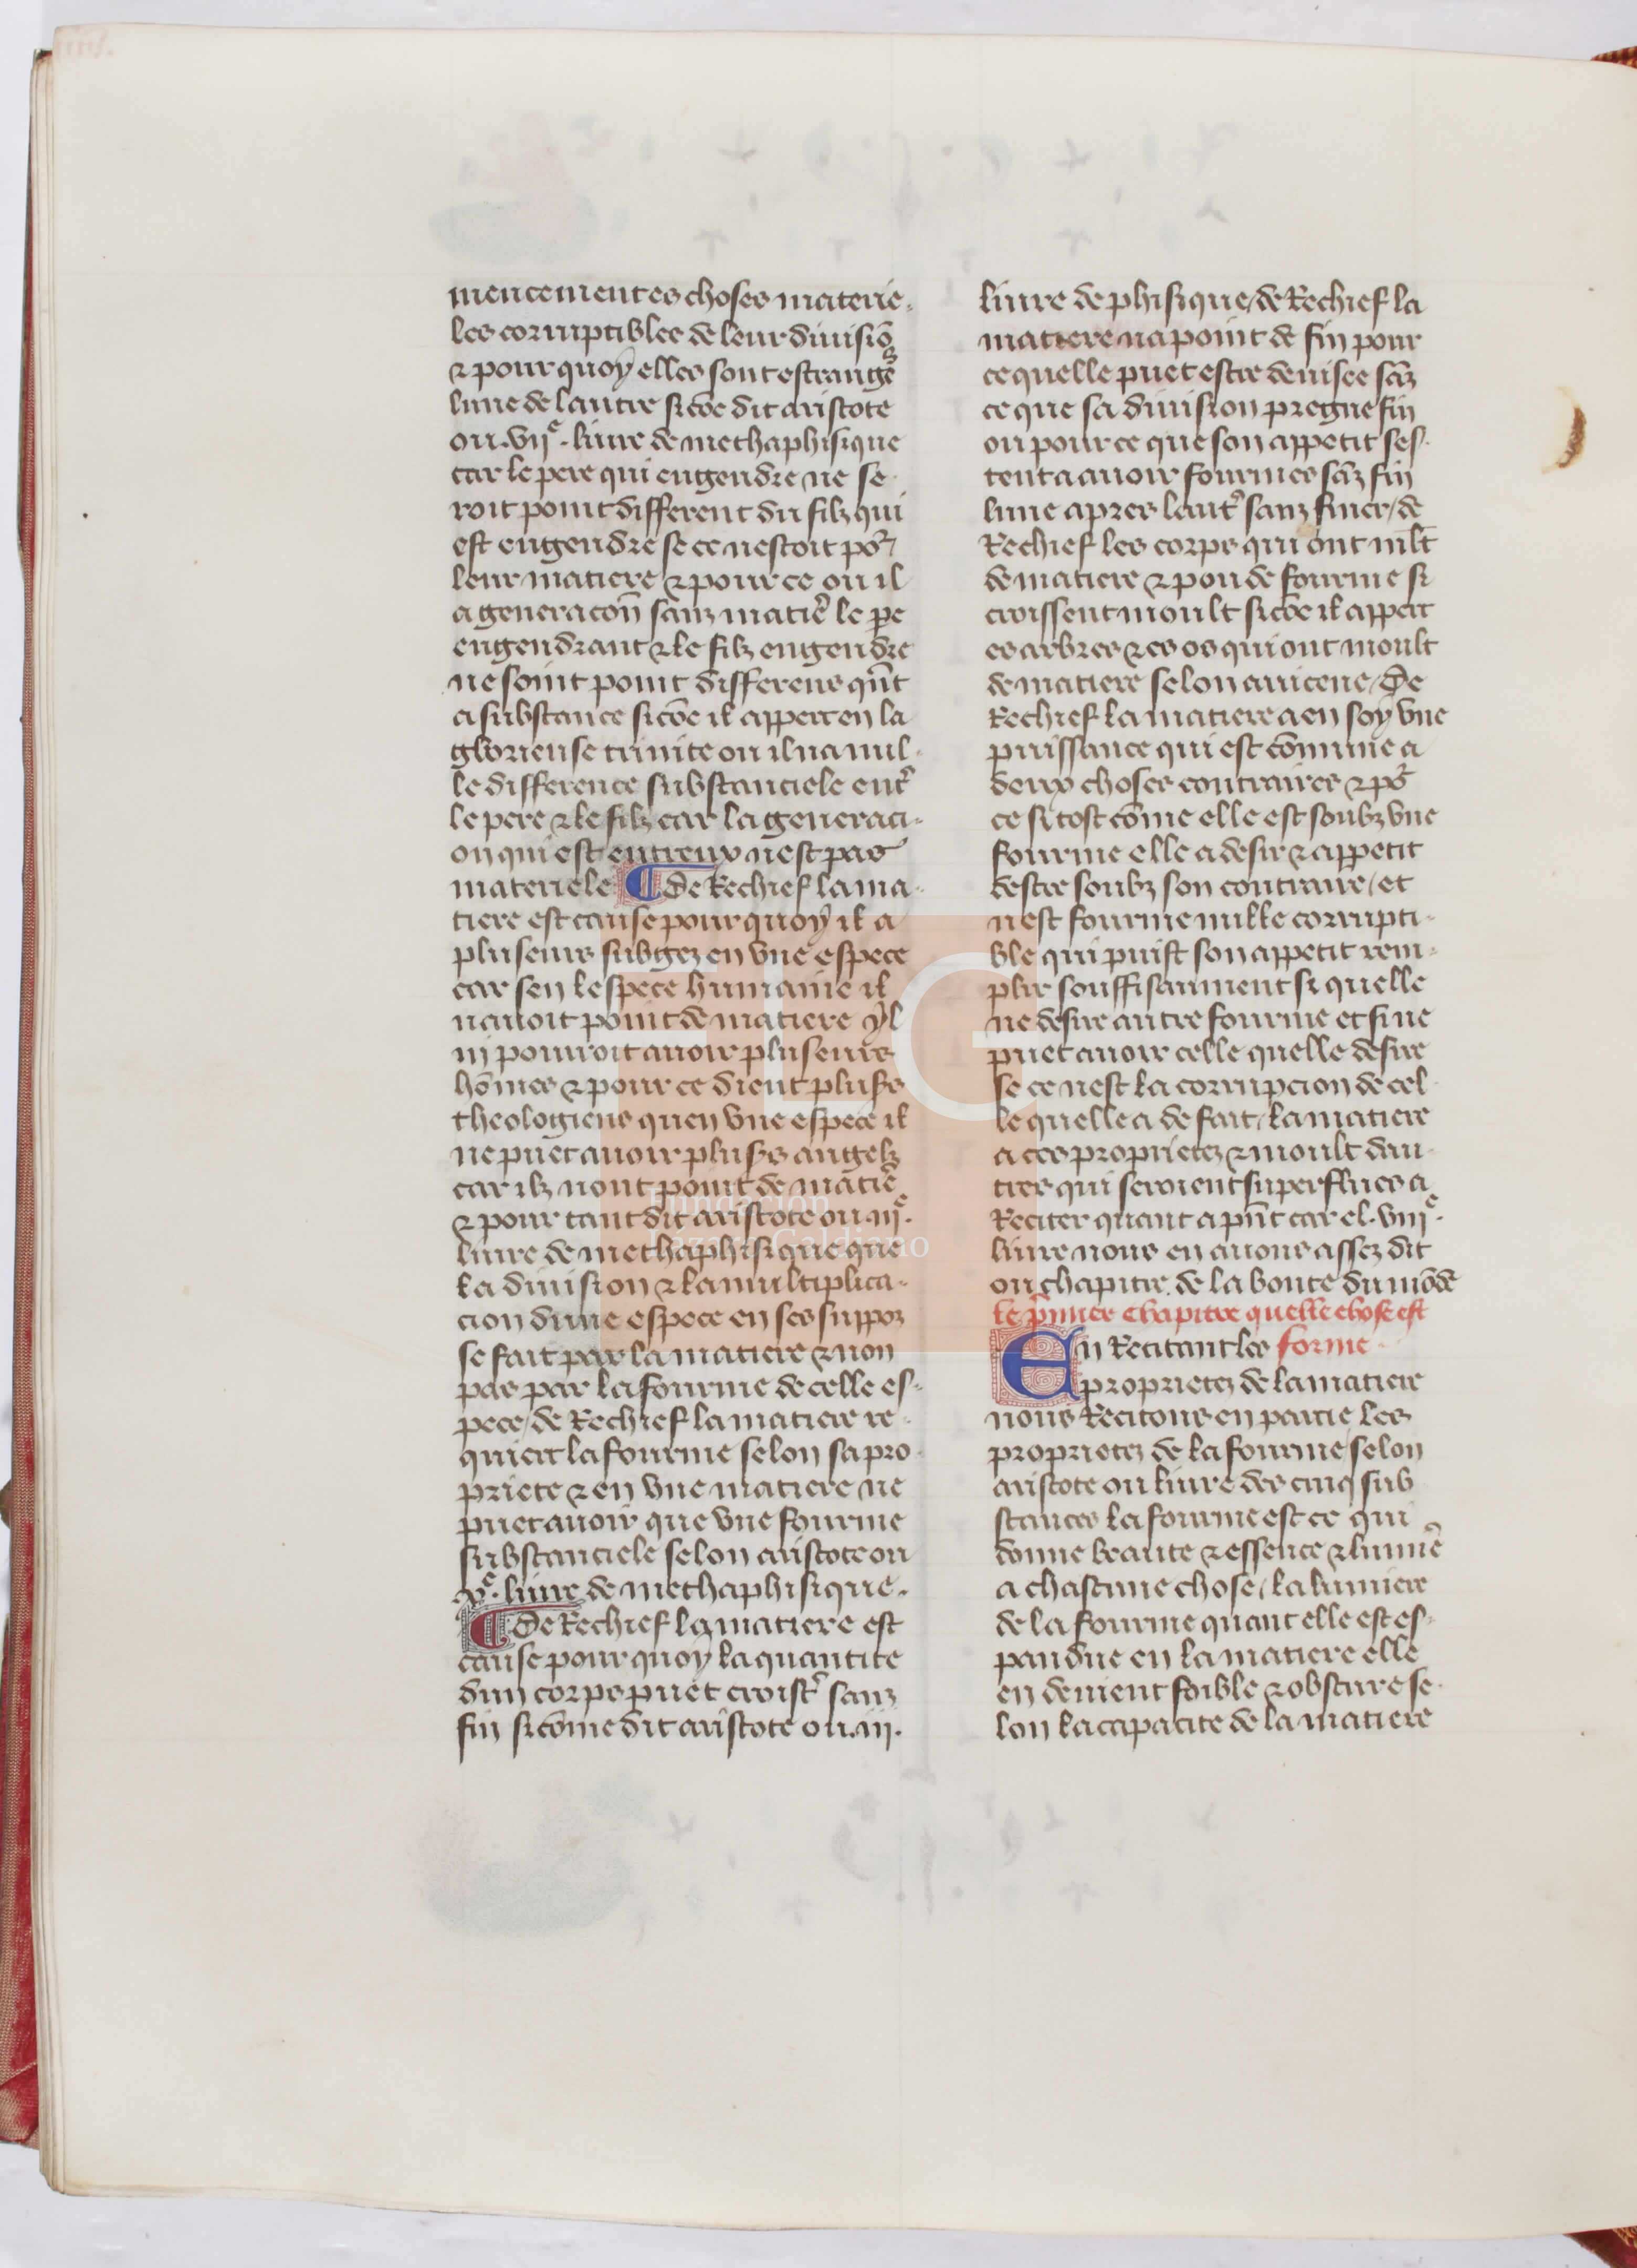 mencement es choses materie-
les corruptibles de leur diuisiō
⁊ pour quoy elles sont estranges
lune de lautre si cōe dit aristote
ou .vijᵉ. liure de methaphisique
car le pere qui engendre ne se-
roit point different du filz qui
est engendre se ce nestoit por
leur matiere ⁊ pour ce ou il
a generacōn sanz matie͛ le pe
engendrant ⁊ le filz engendre
ne soint point differens qūt
a substance si cōe il appert en la
glorieuse trinite ou il na nul-
le difference substanciele ent͛
le pere ⁊ le filz car la generaci-
on qui est entreux nest pas
materiele ¶ de Rechief la ma-
tiere est cause pour quoy il a
pluseurs subgez en vne espece
car sen lespece humaine il
nauoit point de matiere yl
ni pourroit auoir pluseurs
hōmes ⁊ pour ce dient plusrs
theologiens quen vne espece il
ne puet auoir plusrs angelz
car ilz nont point de matie͛
⁊ pour tant dit aristote ou .iijᵉ.
liure de methaphisique que
la diuision ⁊ la multiplica-
cion dune espece en ses suppoz
se fait par la matiere ⁊ non
pas par la fourme de celle es-
pece / de Rechief la matiere re-
quiert la fourme selon sa pro-
priete ⁊ en vne matiere ne
puet auoir que vne fourme
substanciele selon aristote ou
xᵉ. liure de methaphisique.
¶ de Rechief la matiere est
cause pour quoy la quantite
dun corps puet croist͛ sanz
fin si cōme dit aristote ou .iij.
liure de phisique / de Rechief la
matiere na point de fin pour
ce quelle puet estre deuisee sāz
ce que sa diuision pregne fin
ou pour ce que son appetit ses-
tent a auoir fourmes sāz fin
lune apres laut͛ sanz finer / de
Rechief les corps qui ont mlt
de matiere ⁊ pou de fourme si
croissent moult si cōe il appert
es arbres ⁊ es os qui ont moult
de matiere selon auicene / De
Rechief la matiere a en soy vne
puissance qui est cōmune a
deux choses contraires ⁊ por
ce si tost cōme elle est soubz vne
fourme elle a desir ⁊ appetit
destre soubz son contraire / et
nest fourme nulle corrupti-
ble qui puist son appetit rem-
plir souffisanment si quelle
ne desire autre fourme et si ne
puet auoir celle quelle desire
se ce nest la corrupcion de cel-
le quelle a de fait / la matiere
a ces proprietez ⁊ moult dau-
tres qui seroient superflues a
Reciter quant a pn̄t car el .viijᵉ.
liure nous en auons assez dit
ou chapitre de la bonte du mōde
le p͛mier chapitre quelle chose est
forme
En Recitant les
proprietez de la matiere
nous Recitons en partie les
proprietez de la fourme / selon
aristote ou liure des cinq sub
stances la fourme est ce qui
donne beaute ⁊ essence ⁊ lumie͛
a chascune chose / la lumiere
de la fourme quant elle est es-
pandue en la matiere elle
en deuient foible ⁊ obscure se-
lon la capacite de la matiere
FLG
Fundación
Lázaro Galdiano